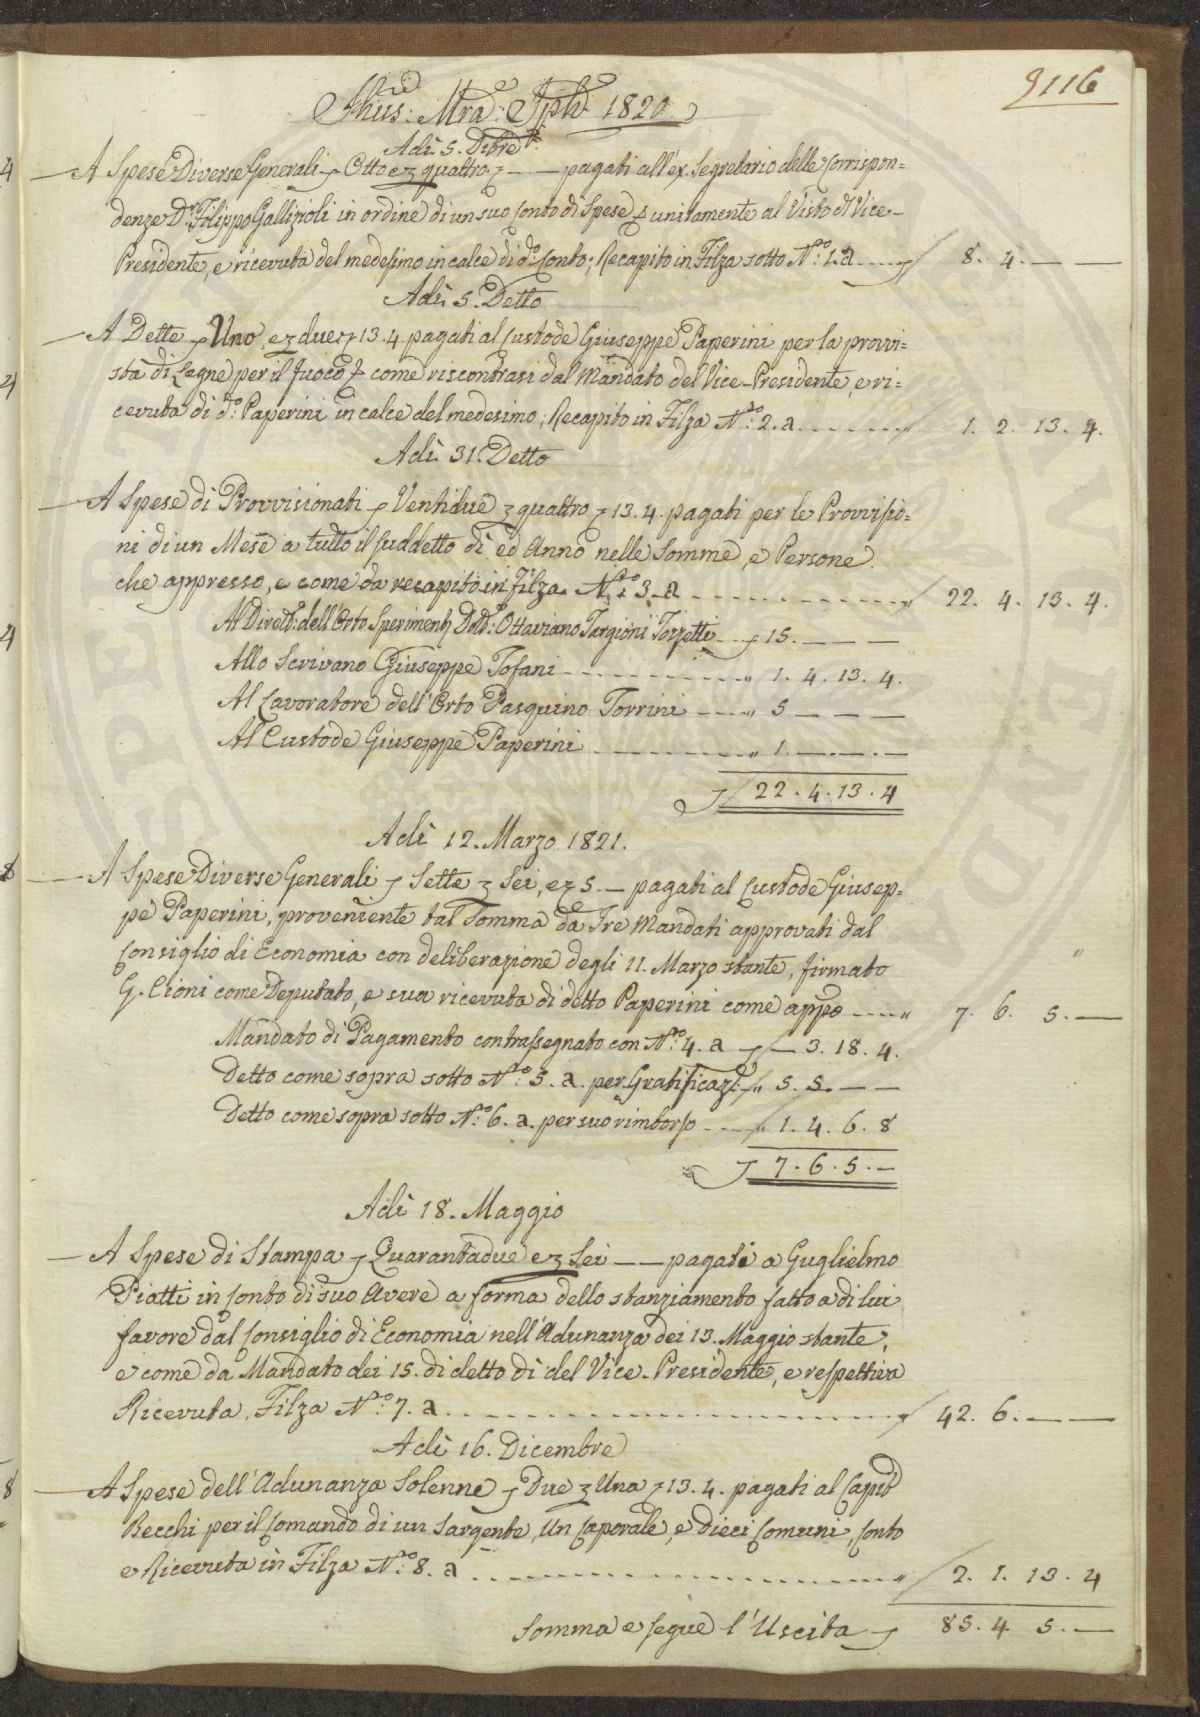 9116
Jhus: Mra: Jph: 1820.
Adì. 5. Dibre
A Spese Diverse Generali Otto e quattro pagati all'ex Segretario delle Corrispon=
denze Dr. Filippo Gallizioli in ordine di un suo Conto di Spese unitamente al Visto d Vice-
Presidente, e ricevuta del medesimo in calce di do. Conto; Recapito in Filza sotto No. 1. a 8. 4. — —
Adì 5. Detto
A Dette Uno, e due 13.4. pagati al Custode Giuseppe Paperini per la provvi=
sta di Legne per il fuoco come riscontrasi dal Mandato del Vice-Presidente, e ri=
cevuta di do. Paperini in calce del medesimo; Recapito in Filza No. 2. a 1. 2. 13. 4.
Adì. 31. Detto
A Spese di Provvisionati Ventidue quattro 13.4. pagati per le Provvisio=
ni di un Mese a tutto il suddetto dì ed Anno nelle Somme, e Persone
che appresso, e come da recapito in Filza. No. 3. a 22. 4. 13. 4.
Al Direttr. dell'Orto Speriment. Dott: Ottaviano Targioni Tozzetti 15. — — —
Allo Scrivano Giuseppe Tofani 1. 4. 13. 4.
Al Lavoratore dell'Orto Pasquino Torrini 5 — — —
Al Custode Giuseppe Paperini 1. — — —
22. 4. 13. 4
Adì 12. Marzo 1821.
A Spese Diverse Generali Sette Sei, e 5. — pagati al Custode Giusep=
pe Paperini, proveniente tal Somma da Tre Mandati approvati dal
Consiglio di Economia con deliberazione degli 11. Marzo stante, firmato
G. Cioni come Deputato, e sua ricevuta di detto Paperini come appo 7. 6. 5. —
Mandato di Pagamento contrassegnato con No. 4. a — 3. 18. 4.
Detto come sopra sotto No. 5. a. per Gratificaz. 5. 5. — —
Detto come sopra sotto No. 6. a. per suo rimborso 1. 4. 6. 8
7. 6. 5. —
Adì 18. Maggio
A Spese di Stampa Quarantadue e Sei — — pagati a Guglielmo
Piatti in Conto di suo Avere a forma dello stanziamento fatto a di lui
favore dal Consiglio di Economia nell'Adunanza dei 13. Maggio stante,
e come da Mandato dei 15. di detto dì del Vice-Presidente, e respettiva
Ricevuta, Filza No. 7. a 42. 6. — —
Adì 16. Dicembre
A Spese dell'Adunanza Solenne Due Una 13. 4. pagati al Capit
Becchi per il Comando di un Sargente, Un Caporale, e Dieci Comuni, Conto
e Ricevuta in Filza No. 8. a 2. 1. 13. 4
Somma e segue l'Uscita 83. 4 5. —